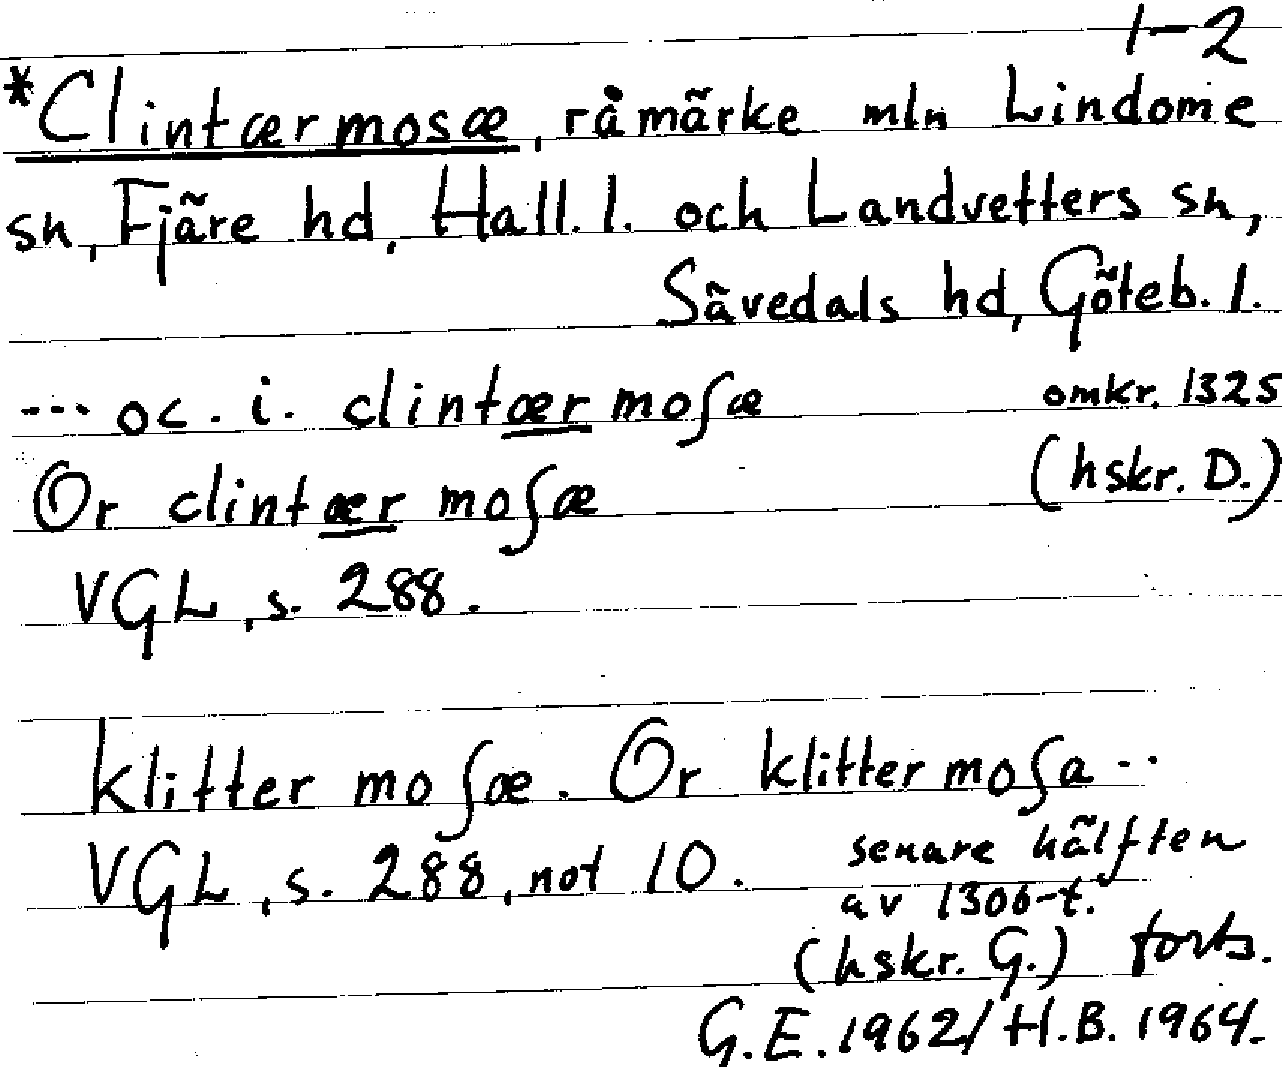 1-2
*Clintærmosæ, råmärke mln Lindome
sn, Fjäre hd, Hall. l. och Landvetters sn,
Sävedals hd, Göteb. l.
... oc. i. clintær moſæ omkr. 1325
Or clintær moſæ (hskr. D.)
VGL, s. 288.
klitter moſæ. Or klitter moſa..
VGL, s. 288, not 10. senare hälften
av 1300-t.
(hskr. G.) forts.
G.E. 1962/H.B. 1964.